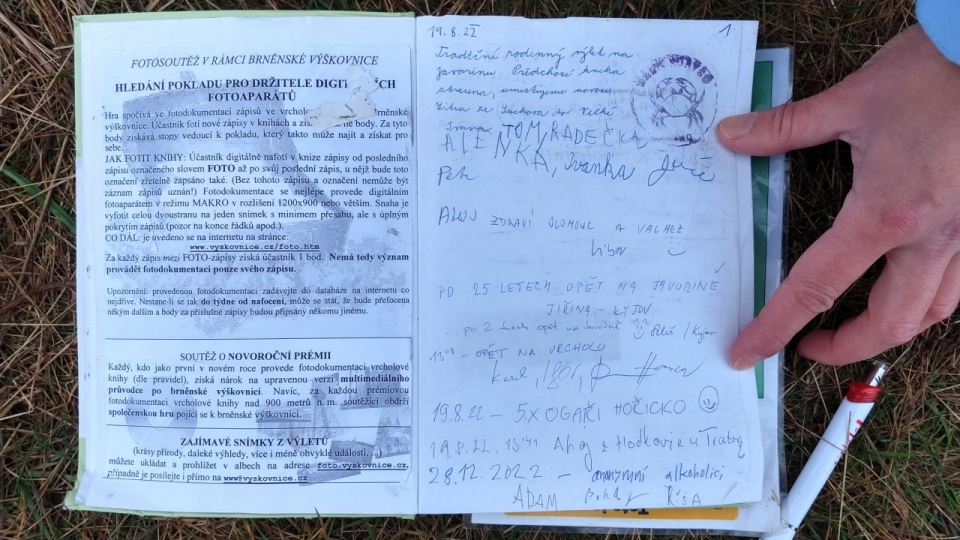 FOTOSOUTĚŽ V RÁMCI BRNĚNSKÉ VÝŠKOVNICE
HLEDÁNÍ POKLADU PRO DRŽITELE DIGIT CH
FOTOAPARÁTŮ
Hra spočívá ve fotodokumentaci zápisů ve vrcholo brněnské
výškovnice. Účastník fotí nové zápisy v knihách a zís né body. Za tyto
body získává stopy vedoucí k pokladu, který takto může najít a získat pro
sebe.
JAK FOTIT KNIHU: Účastník digitálně nafotí v knize zápisy od posledního
zápisu označeného slovem FOTO až po svůj poslední zápis, u nějž bude toto
označení zřetelně zapsáno také. (Bez tohoto zápisu a označení nemůže být
záznam zápisů uznán!) Fotodokumentace se nejlépe provede digitálním
fotoaparátem v režimu MAKRO v rozlišení 1200x900 nebo větším. Snaha je
vyfotit celou dvoustranu na jeden snímek s minimem přesahu, ale s úplným
pokrytím zápisů (pozor na konce řádků apod.).
CO DÁL: je uvedeno se na internetu na stránce:
www.vyskovnice.cz/foto.htm
Za každý zápis mezi FOTO-zápisy získá účastník 1 bod. Nemá tedy význam
provádět fotodokumentaci pouze svého zápisu.
Upozornění: provedenou fotodokumentaci zadávejte do databáze na internetu co
nejdříve. Nestane-li se tak do týdne od nafocení, může se stát, že bude přefocena
někým dalším a body za příslušné zápisy budou připsány někomu jinému.
SOUTĚŽ O NOVOROČNÍ PRÉMII
Každý, kdo jako první v novém roce provede fotodokumentaci vrcholové
knihy (dle pravidel), získá nárok na upravenou verzi multimediálního
průvodce po brněnské výškovnici. Navíc, za každou prémiovou
fotodokumentaci vrcholové knihy nad 900 metrů n. m. soutěžící obdrží
společenskou hru pojící se k brněnské výškovnici.
ZAJÍMAVÉ SNÍMKY Z VÝLETŮ
(krásy přírody, daleké výhledy, více i méně obvyklé události,
můžete ukládat a prohlížet v albech na adrese foto.vyskovnice.cz,
případně je posílejte i přímo na www@vyskovnice.cz
19.8.22 1
Tradiční rodinný výlet na
Javořinu. Předchozí kniha
umisťujeme novou
TOM RADEČKA
ALENKA, Ivanka
Petr
ALOJ ZDRAVÍ OLOMOUC A VALMEZ
Libor
PO 25 LETECH OPĚT NA JAVOŘINĚ
JIŘINA - KYJOV
... po 2 letech opět na Javořině
OPĚT NA VRCHOLU
Karel,
19.8.22 - 5X OGAŘI HOŠICKO
19.8.22, 13:41
28.12.2022 - anonymní alkoholici
ADAM RÍŠA